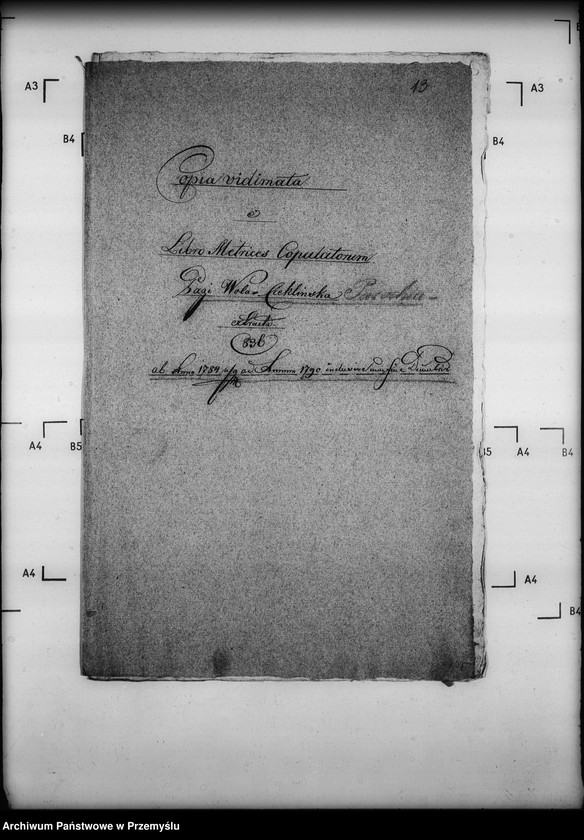 13
Copia vidimata
e
Libro Metrices Copulatorum
Pagi Wola Cieklinska Parochia
extracta
836
ab Anno 1784 usq ad Annum 1790 inclusive
A3
A3
B4
B4
A4
B5
B5
A4
B4
A4
A4
B4
Archiwum Państwowe w Przemyślu